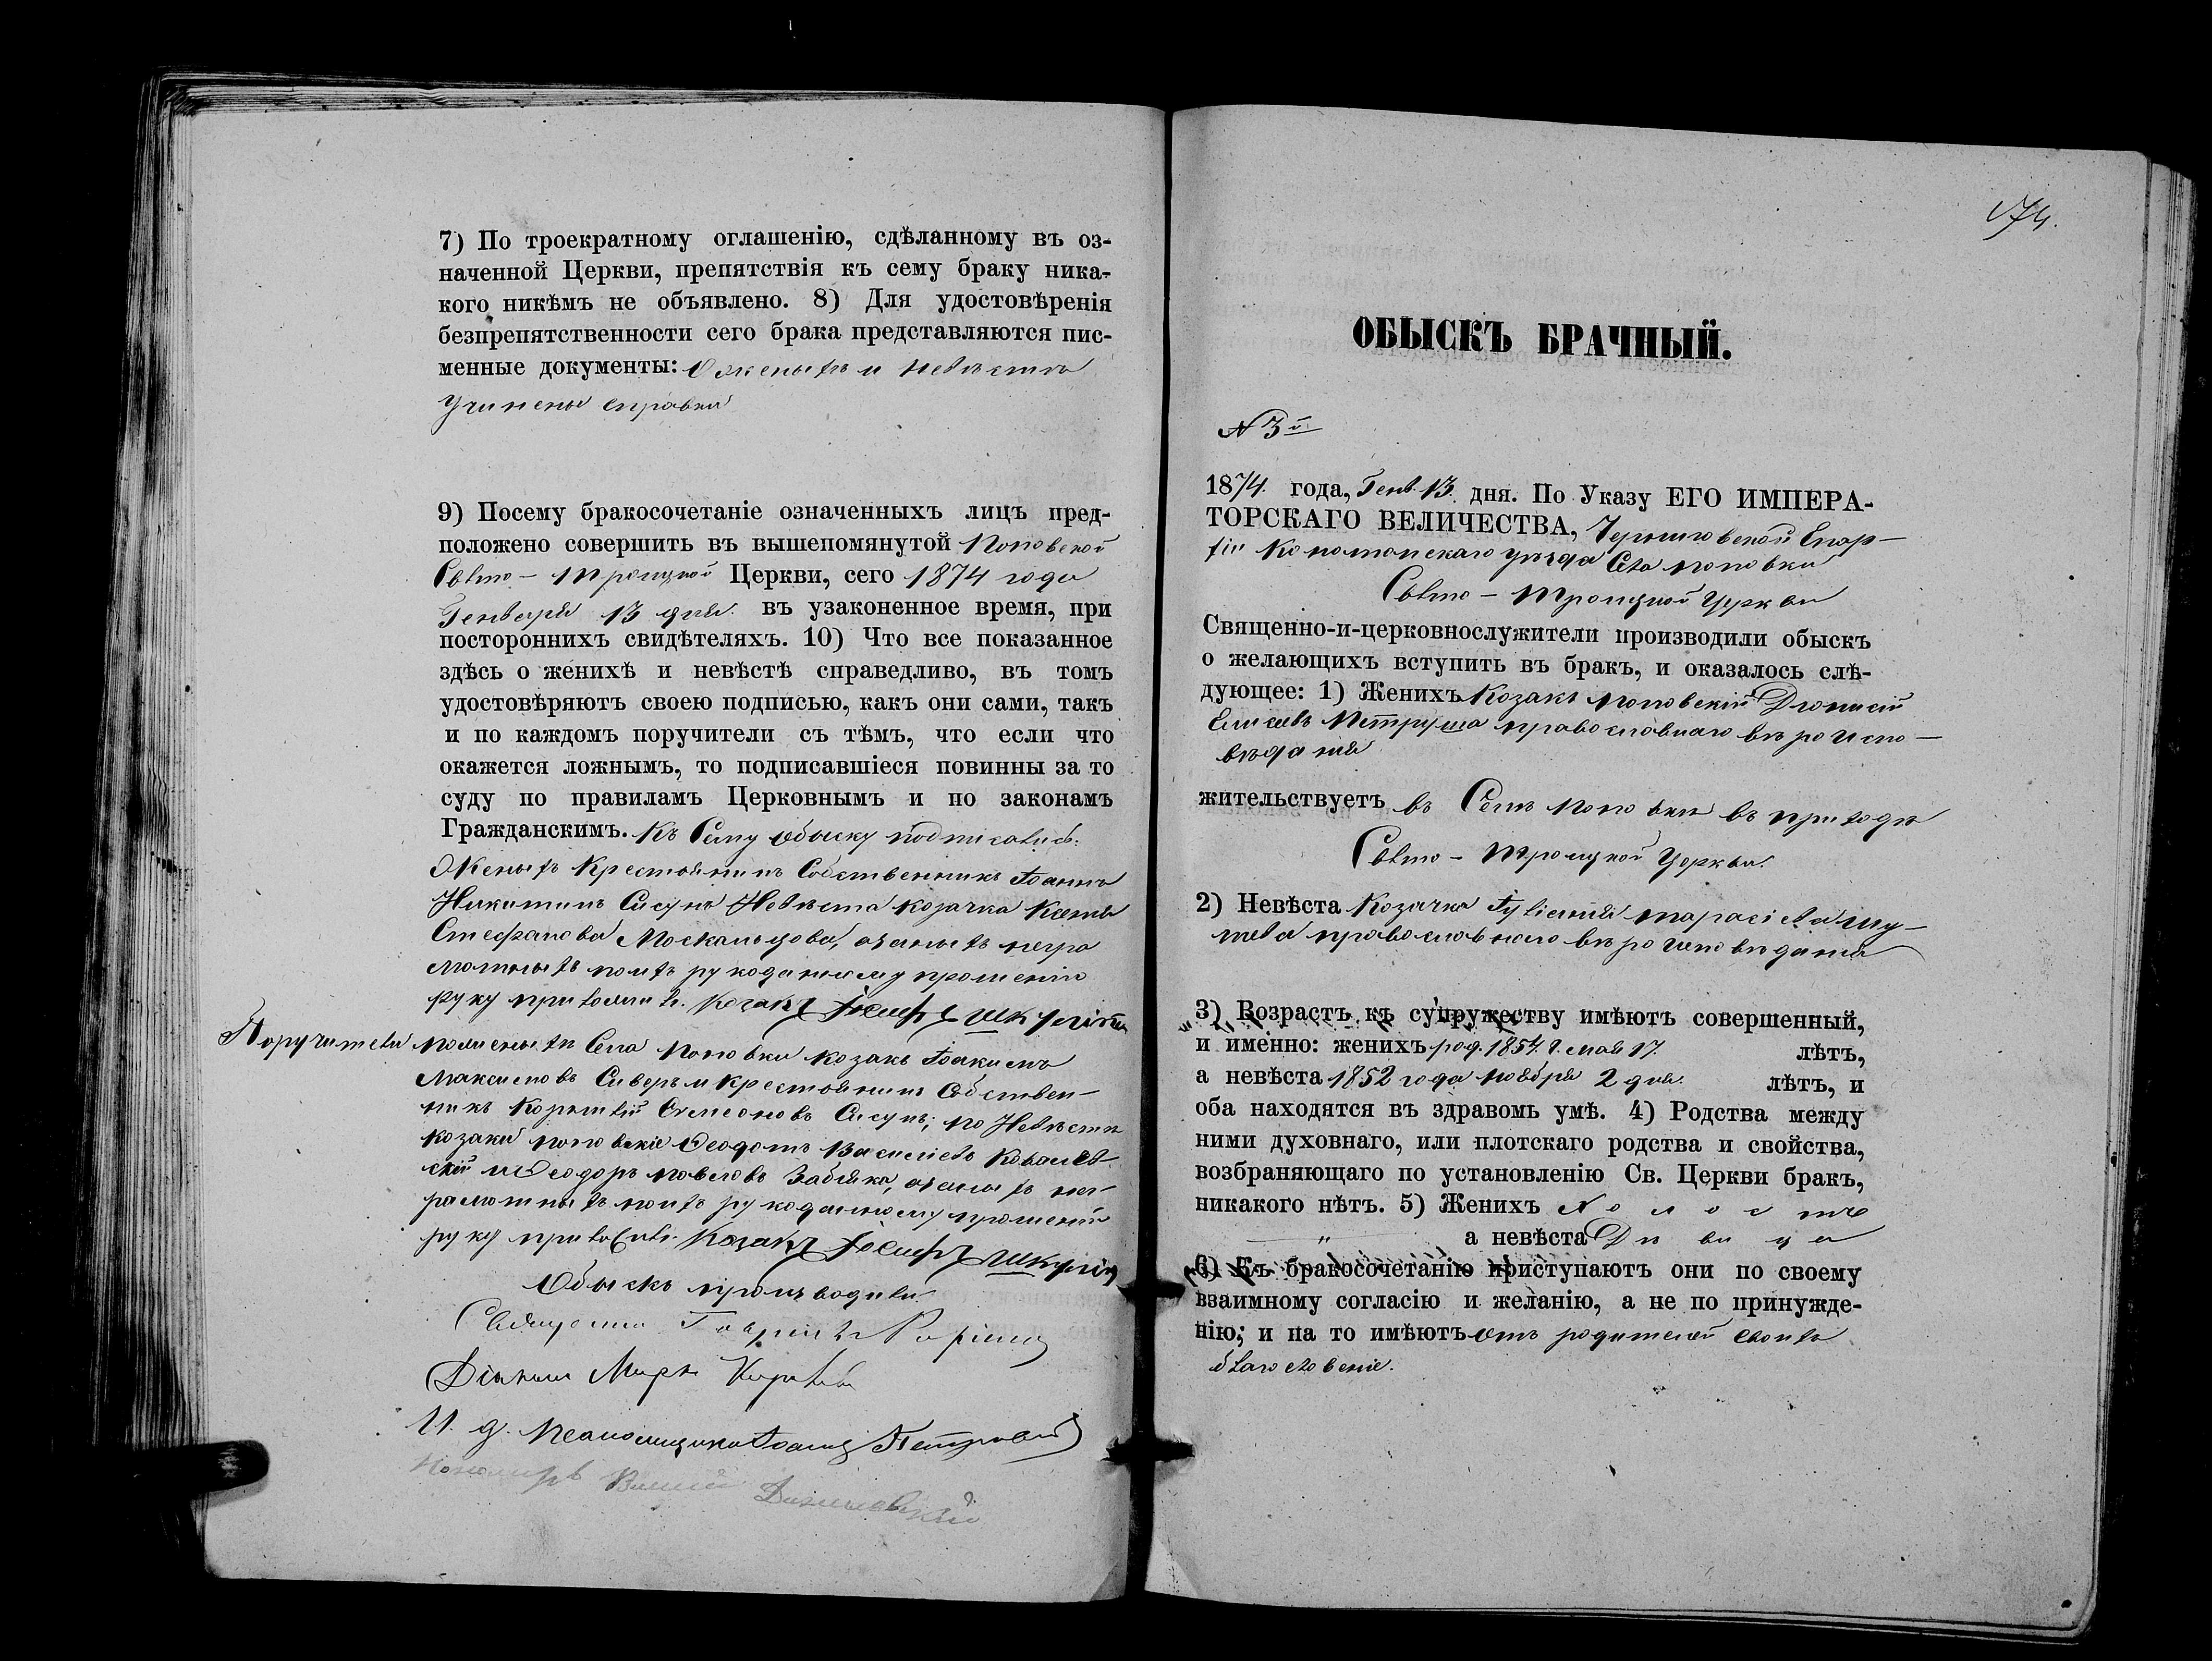 7) По троекратному оглашенію, сдѣланному въ оз-
наченной Церкви, препятствія къ сему браку ника-
кого никѣмъ не объявлено. 8) Для удостовѣренія
безпрепятственности сего брака представляются пис-
менные документы: О женихѣ и невѣстѣ
учинены справки
9) Посему бракосочетаніе означенныхъ лицъ пред-
положено совершить въ вышепомянутой Поповской
Свято-Троицкой Церкви, сего 1874 года
Генваря 13 дня въ узаконенное время, при
постороннихъ свидѣтеляхъ. 10) Что все показанное
здѣсь о женихѣ и невѣстѣ справедливо, въ томъ
удостовѣряютъ своею подписью, какъ они сами, такъ
и по каждомъ поручители съ тѣмъ, что если что
окажется ложнымъ, то подписавшіеся повинны за то
суду по правиламъ Церковнымъ и по законамъ
Гражданскимъ. Къ сему обыску подписались:
Женихъ крестьянинъ собственникъ Іоаннъ
Никитинъ Сисунъ Невѣста козачка Ксенія
Стефанова Москальцова, а за нихъ негра
мотныхъ по ихъ рукоданному прошенію
руку приложилъ. Козакъ Іосифъ
Поручители по женихѣ Села Поповки козакъ Іоакимъ
Максимовъ Сиверъ и крестьянинъ Собствен-
никъ Корнилій Семеоновъ Сисунъ; по Невѣстѣ
козаки поповскіе Ѳеодотъ Василіевъ Ковалев-
скій и Ѳеодоръ Павловъ Забіяка, а за ихъ нег-
рамотныхъ по ихъ рукоданному прошенію
руку приложилъ Козакъ Іосифъ
Обыскъ производили
Священникъ Гавріилъ
Діаконъ Маркъ
И. д. Псаломщика Іоаннъ Петровскій
Пономарь
174.
ОБЫСКЪ БРАЧНЫЙ.
N 3й
1874 года, Генв. 13 дня. По Указу ЕГО ИМПЕРА-
ТОРСКАГО ВЕЛИЧЕСТВА, Черниговской Епар-
хіи Конотопскаго уѣзда Села Поповки
Свято-Троицкой Церкви
Священно-и-церковнослужители производили обыскъ
о желающихъ вступить въ бракъ, и оказалось слѣ-
дующее: 1) Женихъ Козакъ поповскій Діонисій
Елисевъ Петруша православнаго вѣроиспо-
вѣданія
жительствуетъ въ Селѣ Поповки въ приходѣ
Свято-Троицкой Церкви.
2) Невѣста Козачка Іуліанія Тарасі
православного вѣроисповѣданія
3) Возрастъ къ супружеству имѣютъ совершенный,
и именно: женихъ род. 1854 г. мая 17. лѣтъ,
а невѣста 1852 года ноября 2 дня. лѣтъ, и
оба находятся въ здравомъ умѣ. 4) Родства между
ними духовнаго, или плотскаго родства и свойства,
возбраняющаго по установленію Св. Церкви бракъ,
никакого нѣтъ. 5) Женихъ Холостъ
" а невѣста Дѣвица
6) Къ бракосочетанію приступаютъ они по своему
взаимному согласію и желанію, а не по принужде-
нію; и на то имѣютъ отъ родителей своихъ
благословеніе.